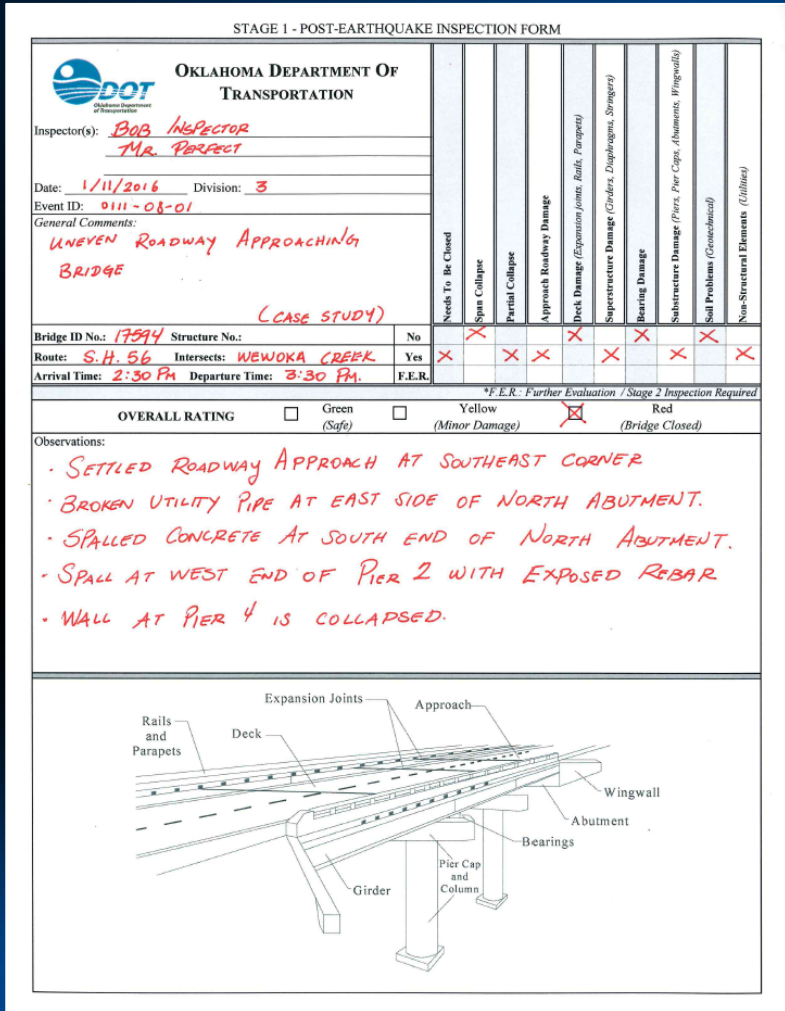 STAGE 1 - POST-EARTHQUAKE INSPECTION FORM
ODOT
Oklahoma Department
of Transportation
OKLAHOMA DEPARTMENT OF
TRANSPORTATION
Inspector(s): BOB INSPECTOR
MR. PERFECT
Date: 1/11/2016 Division: 3
Event ID: 0111-08-01
General Comments:
UNEVEN ROADWAY APPROACHING
BRIDGE
(CASE STUDY)
Needs To Be Closed
Span Collapse
Partial Collapse
Approach Roadway Damage
Deck Damage (Expansion joints, Rails, Parapets)
Superstructure Damage (Girders, Diaphragms, Stringers)
Bearing Damage
Substructure Damage (Piers, Pier Caps, Abutments, Wingwalls)
Soil Problems (Geotechnical)
Non-Structural Elements (Utilities)
Bridge ID No.: 17594 Structure No.: No X X X X
Route: S.H. 56 Intersects: WEWOKA CREEK Yes X X X X X X
Arrival Time: 2:30 PM Departure Time: 3:30 PM. F.E.R.
*F.E.R.: Further Evaluation / Stage 2 Inspection Required
OVERALL RATING Green Yellow X Red
(Safe) (Minor Damage) (Bridge Closed)
Observations:
· SETTLED ROADWAY APPROACH AT SOUTHEAST CORNER
· BROKEN UTILITY PIPE AT EAST SIDE OF NORTH ABUTMENT.
· SPALLED CONCRETE AT SOUTH END OF NORTH ABUTMENT.
· SPALL AT WEST END OF PIER 2 WITH EXPOSED REBAR
· WALL AT PIER 4 IS COLLAPSED.
Expansion Joints
Approach
Rails
and
Parapets
Deck
Wingwall
Abutment
Bearings
Pier Cap
and
Column
Girder